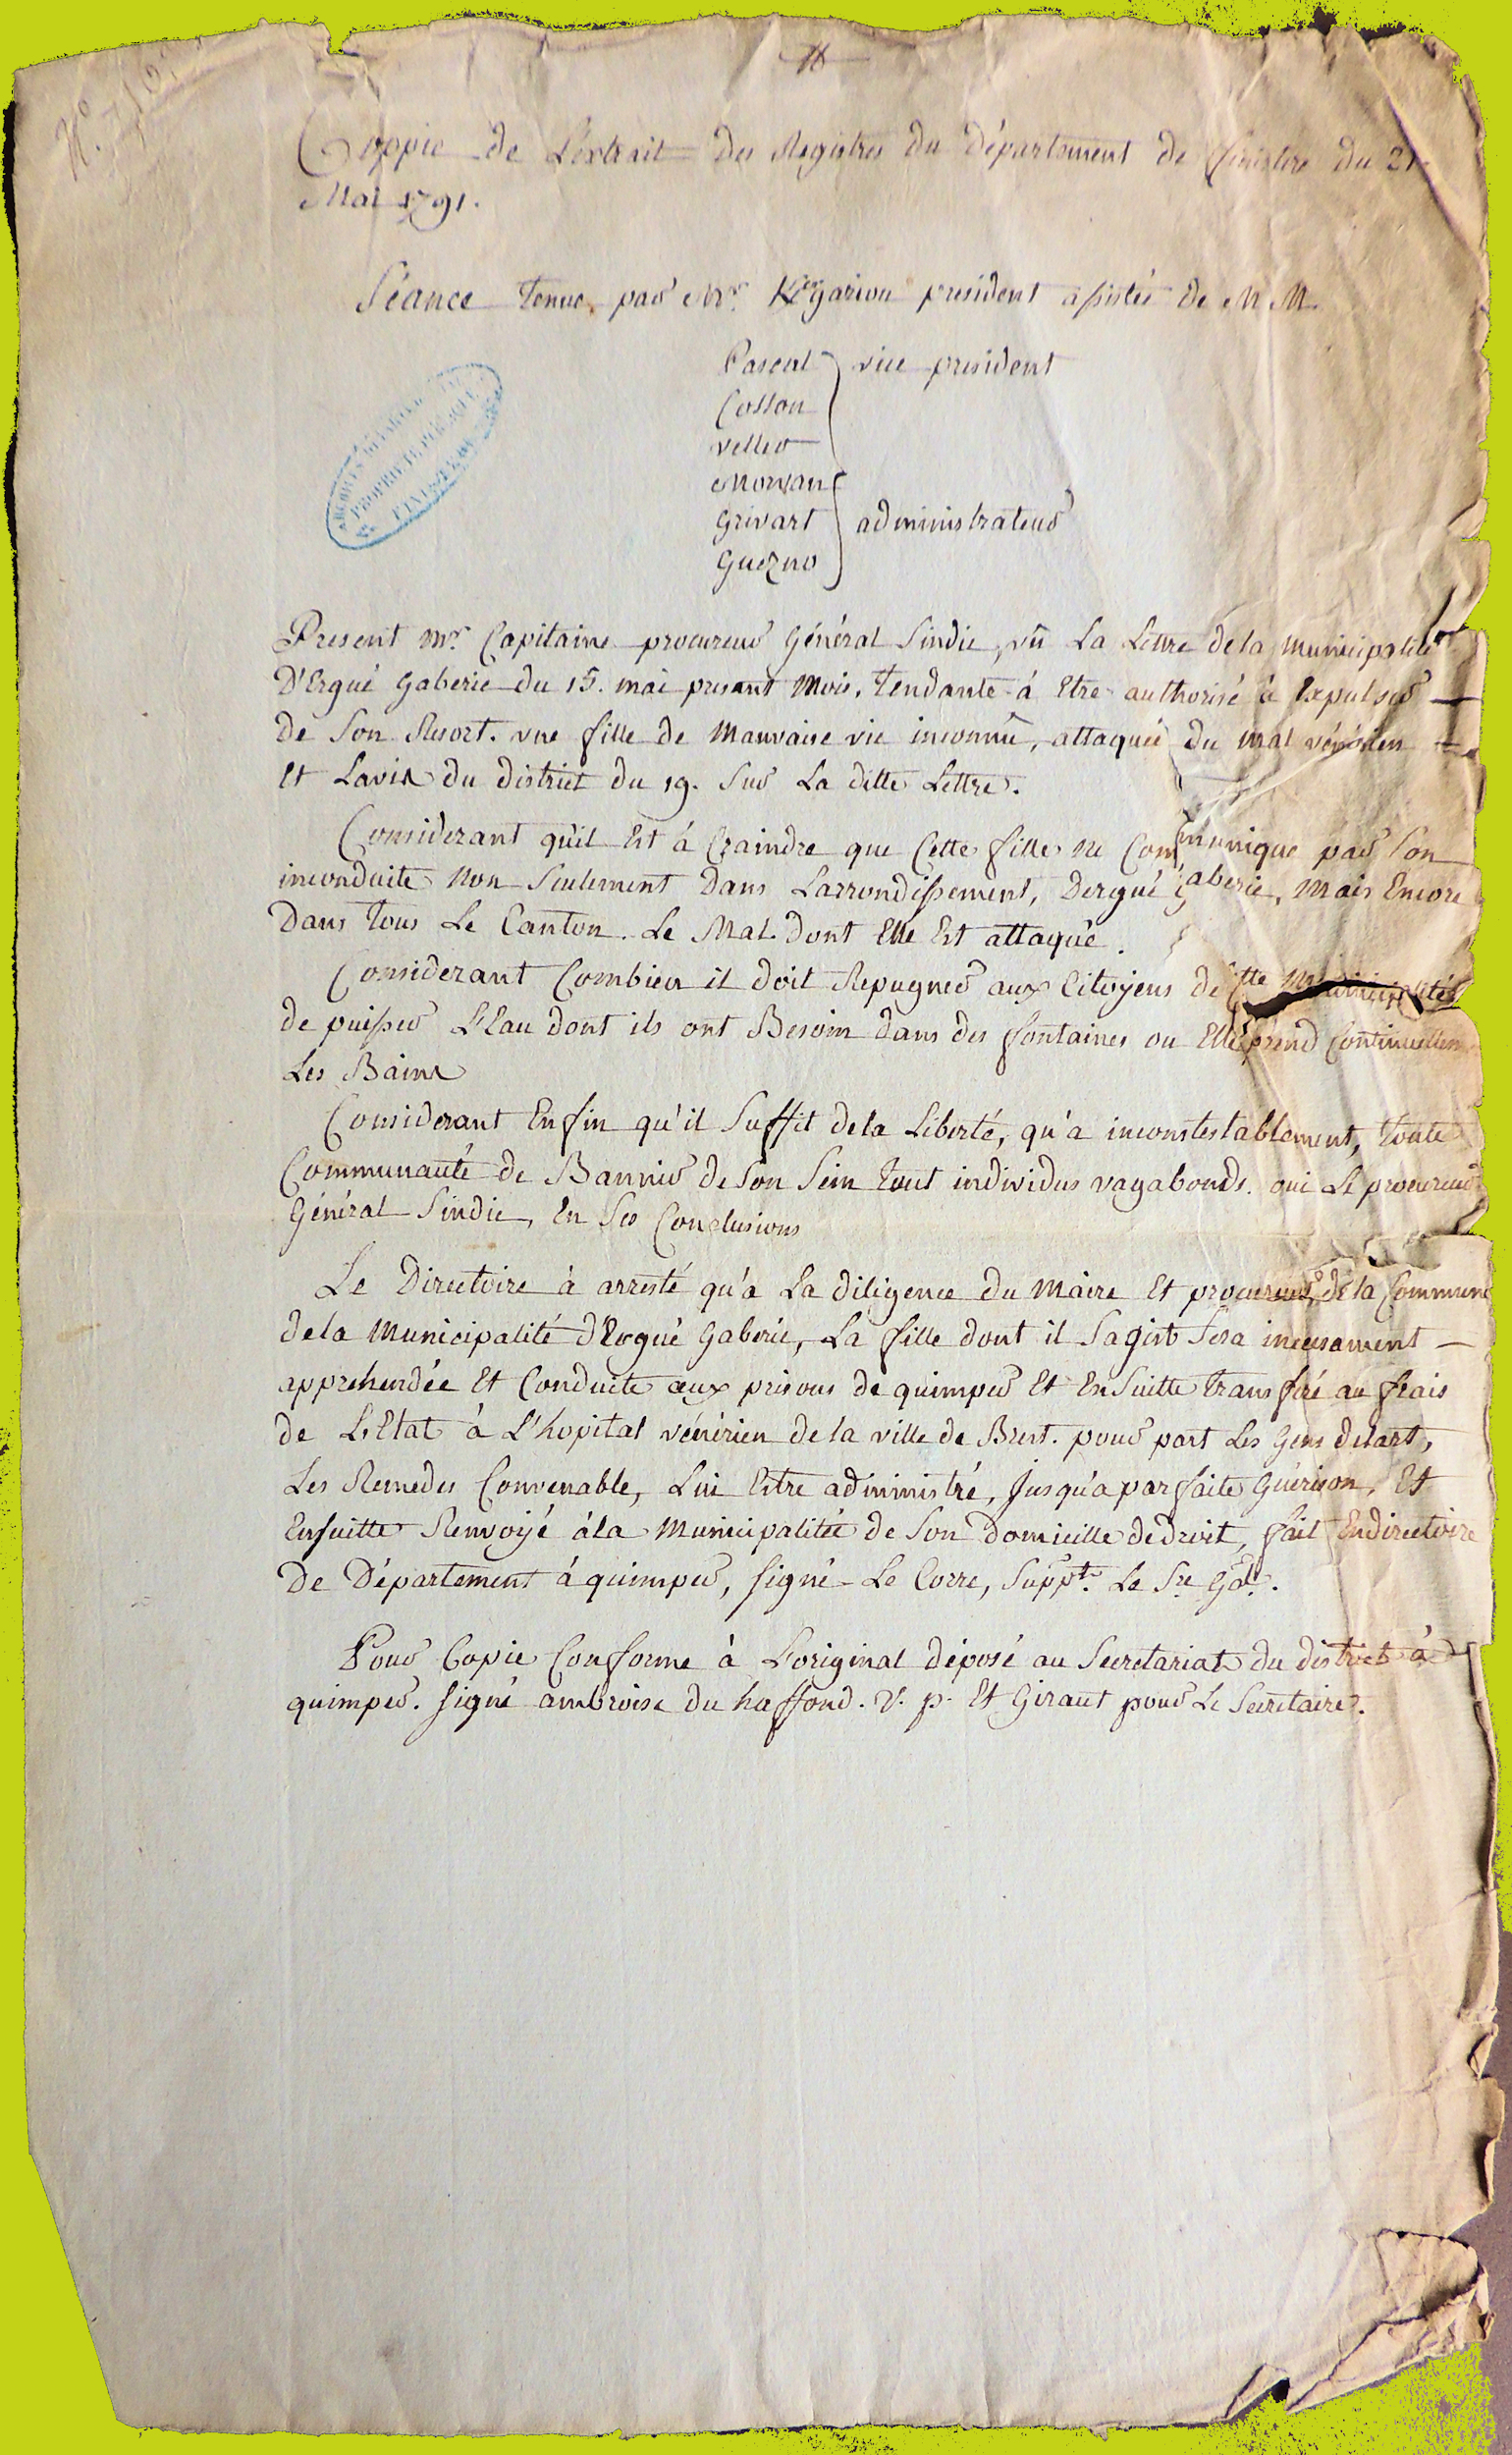 Coppie de L'extrait des Registres du département de finistere du 21
Mai 1791.
Séance tenue par Mr. Kergariou president assistés de MM.
Pascal vice president
Cosson
veller
Morvan
Grivart administrateur
Guezno
Present Mr. Capitaine procureur Général Sindic, vû La Lettre de la municipalité
D'Ergué gaberie du 15. mai present mois, tendante á Etre authorisé à Expulser
de Son Resort. une fille de Mauvaise vie inconnû, attaquée du mal vénérien
Et Lavis du district du 19. Sur La ditte Lettre.
Considerant qu'il Est à Craindre que Cette fille ne Communique par Son
inconduite Non Seulement Dans Larrondissement, Dergué gaberie, Mais Encore
Dans tous Le Canton. Le Mal Dont Elle Est attaqué.
Considerant Combien il doit Repugner aux Citoyens de Cette Municipalités
de puisser L'Eau dont ils ont Besoin dans des fontaines ou Elle prend Continuellem
Les Bains
Considerant Enfin qu'il Suffit dela Liberté, qu'a inconstestablement, toute
Communauté de Bannir de Son Sein tout individus vagabonds. oui Le procureur
Général Sindic, En Ses Conclusions
Le Directoire à arresté qu'a La diligence du Maire Et procureur de la Commune
dela Municipalité d'Ergué Gaberie, La fille dont il Sagist Sera incessament
apprehendée Et Conduite aux prisons de quimper Et Ensuitte transféré au frais
de L'Etat à L'hopital vénérien dela ville de Brest. pour part Les Gens delart,
Les Remedes Convenable, Lui Estre administré, Jusqu'a parfaite Guérison, Et
Ensuitte Renvoyé á la Municipalitée de Son Domicille dedroit, fait Endirectoire
De Département á quimper, signé Le Corre, Suppt. Le Sre Gal.
Pour Copie Conforme à L'original déposé au Secretariat du district à
quimper. signé ambroise du haffond. V. p. Et Giraut pour Le Secretaire.